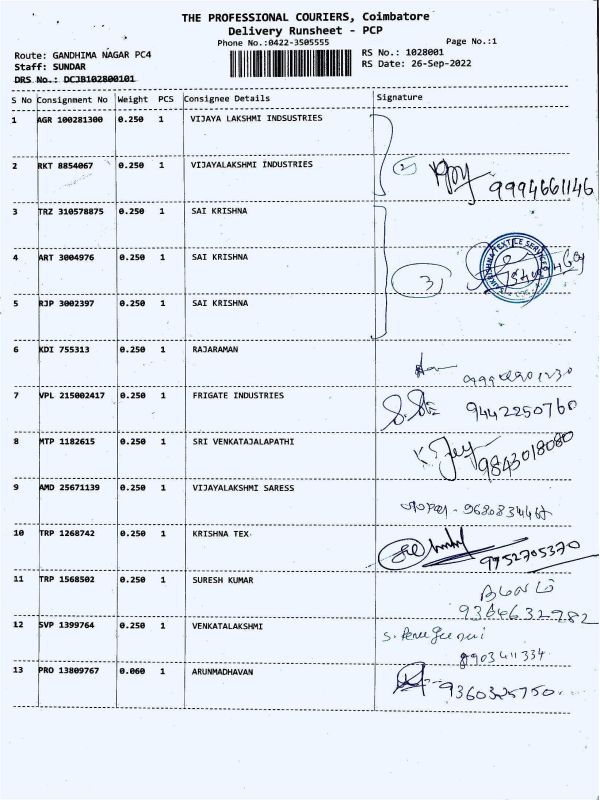 THE PROFESSIONAL COURIERS, Coimbatore
Delivery Runsheet - PCP
Phone No.:0422-3505555 Page No.:1
Route: GANDHIMA NAGAR PC4 RS No.: 1028001
Staff: SUNDAR RS Date: 26-Sep-2022
DRS No.: DCJB102800101
S No Consignment No Weight PCS Consignee Details Signature
1 AGR 100281300 0.250 1 VIJAYA LAKSHMI INDSUSTRIES
2 RKT 8854067 0.250 1 VIJAYALAKSHMI INDUSTRIES 2 9994661146
3 TRZ 310578875 0.250 1 SAI KRISHNA
4 ART 3004976 0.250 1 SAI KRISHNA 3
5 RJP 3002397 0.250 1 SAI KRISHNA
6 KDI 755313 0.250 1 RAJARAMAN
7 VPL 215002417 0.250 1 FRIGATE INDUSTRIES 9442250760
8 MTP 1182615 0.250 1 SRI VENKATAJALAPATHI 9843018080
9 AMD 25671139 0.250 1 VIJAYALAKSHMI SARESS
10 TRP 1268742 0.250 1 KRISHNA TEX 9952705370
11 TRP 1568502 0.250 1 SURESH KUMAR
9364632982
12 SVP 1399764 0.250 1 VENKATALAKSHMI
8903411334
13 PRO 13809767 0.060 1 ARUNMADHAVAN 9360325750